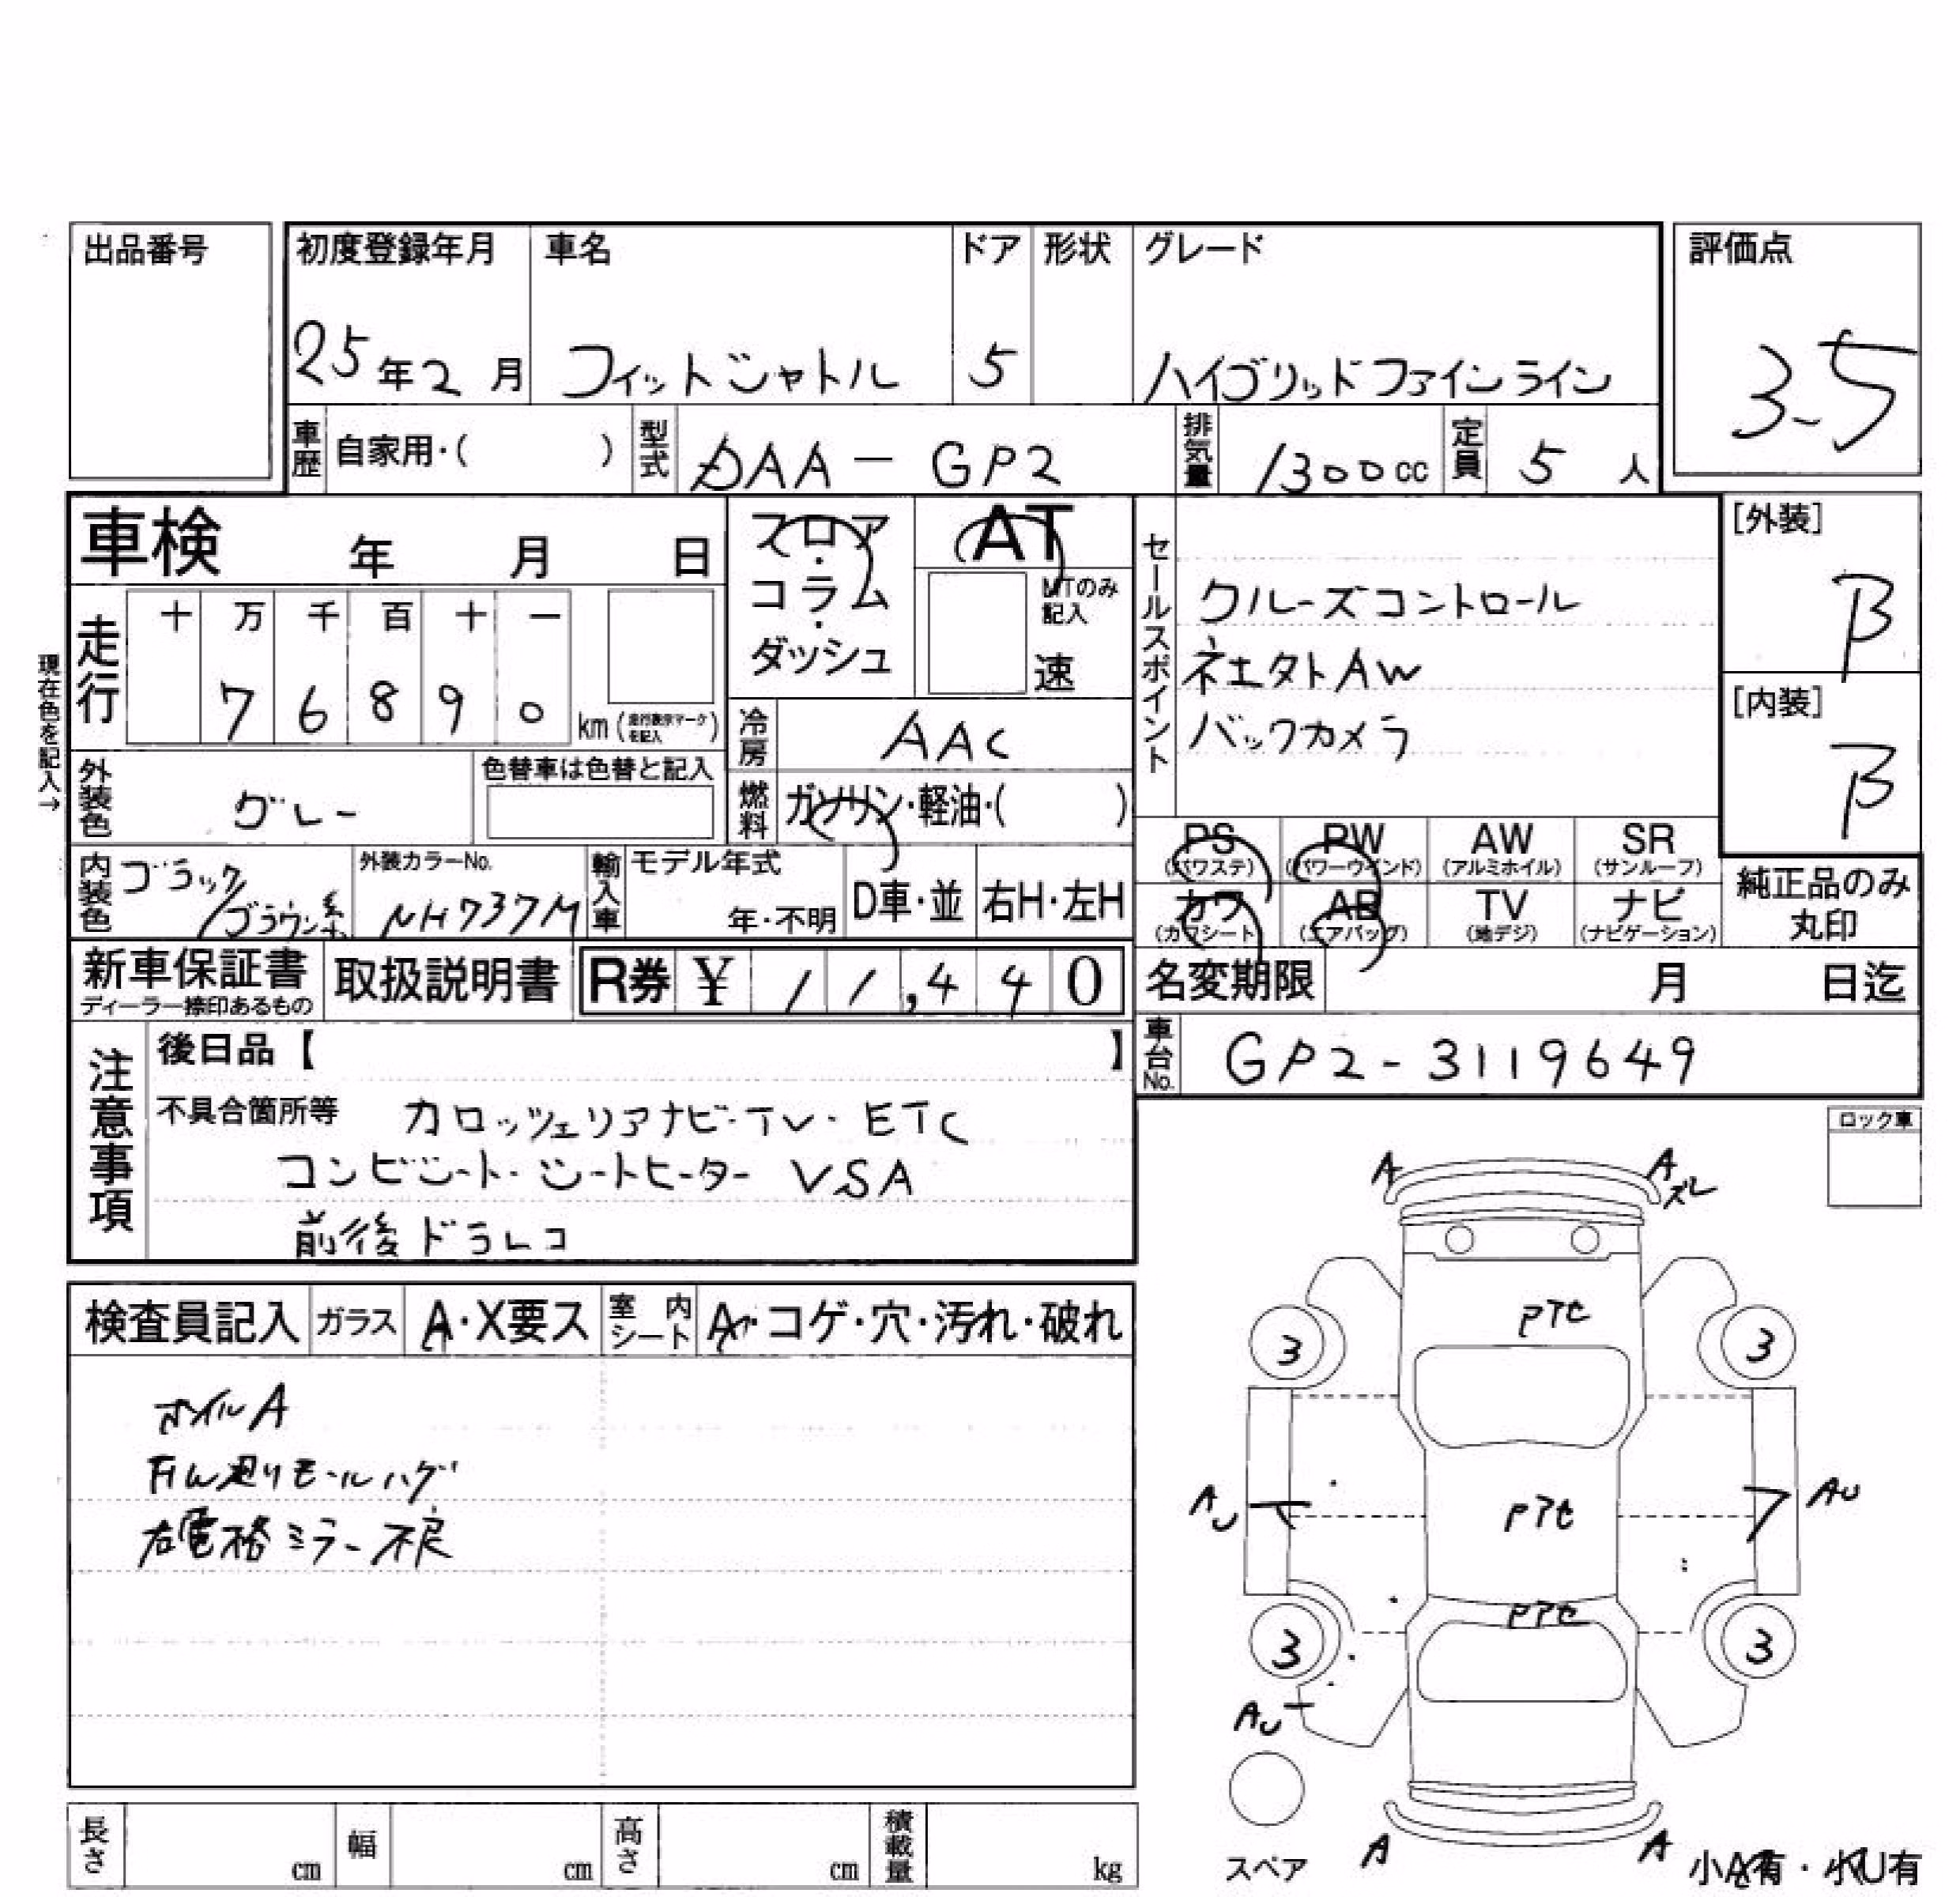 出品番号
初度登録年月 車名 ドア 形状 グレード 評価点
25年2月 フィットシャトル 5 ハイブリッドファインライン 3.5
車歴 自家用・( ) 型式 DAA-GP2 排気量 1300cc 定員 5人
車検 年 月 日
フロア・コラム・ダッシュ
AT
MTのみ記入
速
セールスポイント
クルーズコントロール
AW
バックカメラ
[外装]
B
[内装]
B
現在色を記入→
走行 十 万 千 百 十 一
7 6 8 9 0 km (走行表示マークを記入)
冷房 AAC
外装色 グレー 色替車は色替と記入
燃料 ガソリン・軽油・( )
PS (パワステ) PW (パワーウインド) AW (アルミホイル) SR (サンルーフ)
カワ (カワシート) AB (エアバッグ) TV (地デジ) ナビ (ナビゲーション)
純正品のみ丸印
内装色 ブラック/ブラウン系 外装カラーNo. NH737M 輸入車 モデル年式 年・不明 D車・並 右H・左H
新車保証書 ディーラー捺印あるもの 取扱説明書 R券 ¥ 11,440
名変期限 月 日迄
車台No. GP2-3119649
注意事項
後日品【 】
不具合箇所等 カロッツェリアナビ・TV・ETC
コンビシート・シートヒーター VSA
前後ドラレコ
ロック車
検査員記入 ガラス A・X要ス 室内シート A・コゲ・穴・汚れ・破れ
ホイルA
モールハゲ
右電格ミラー不良
A A
ズレ
3 3
AU AU
3 3
AU
スペア A A 小A有・小U有
長さ cm 幅 cm 高さ cm 積載量 kg